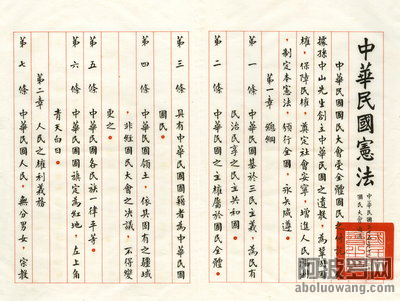 中華民國憲法
中華民國
國民大會
中華民國國民大會受全體國民之
據孫中山先生創立中華民國之遺教，為
權，保障民權，奠定社會安寧，增進人民
，制定本憲法，頒行全國，永矢咸遵。
第一章 總綱
第一條 中華民國基於三民主義，為民有
民治民享之民主共和國。
第二條 中華民國之主權屬於國民全體。
第三條 具有中華民國國籍者為中華民國
國民。
第四條 中華民國領土，依其固有之疆域
，非經國民大會之決議，不得變
更之。
第五條 中華民國各民族一律平等。
第六條 中華民國國旗定為紅地，左上角
青天白日。
第二章 人民之權利義務
第七條 中華民國人民，無分男女，宗教
阿波罗网
aboluowang.com